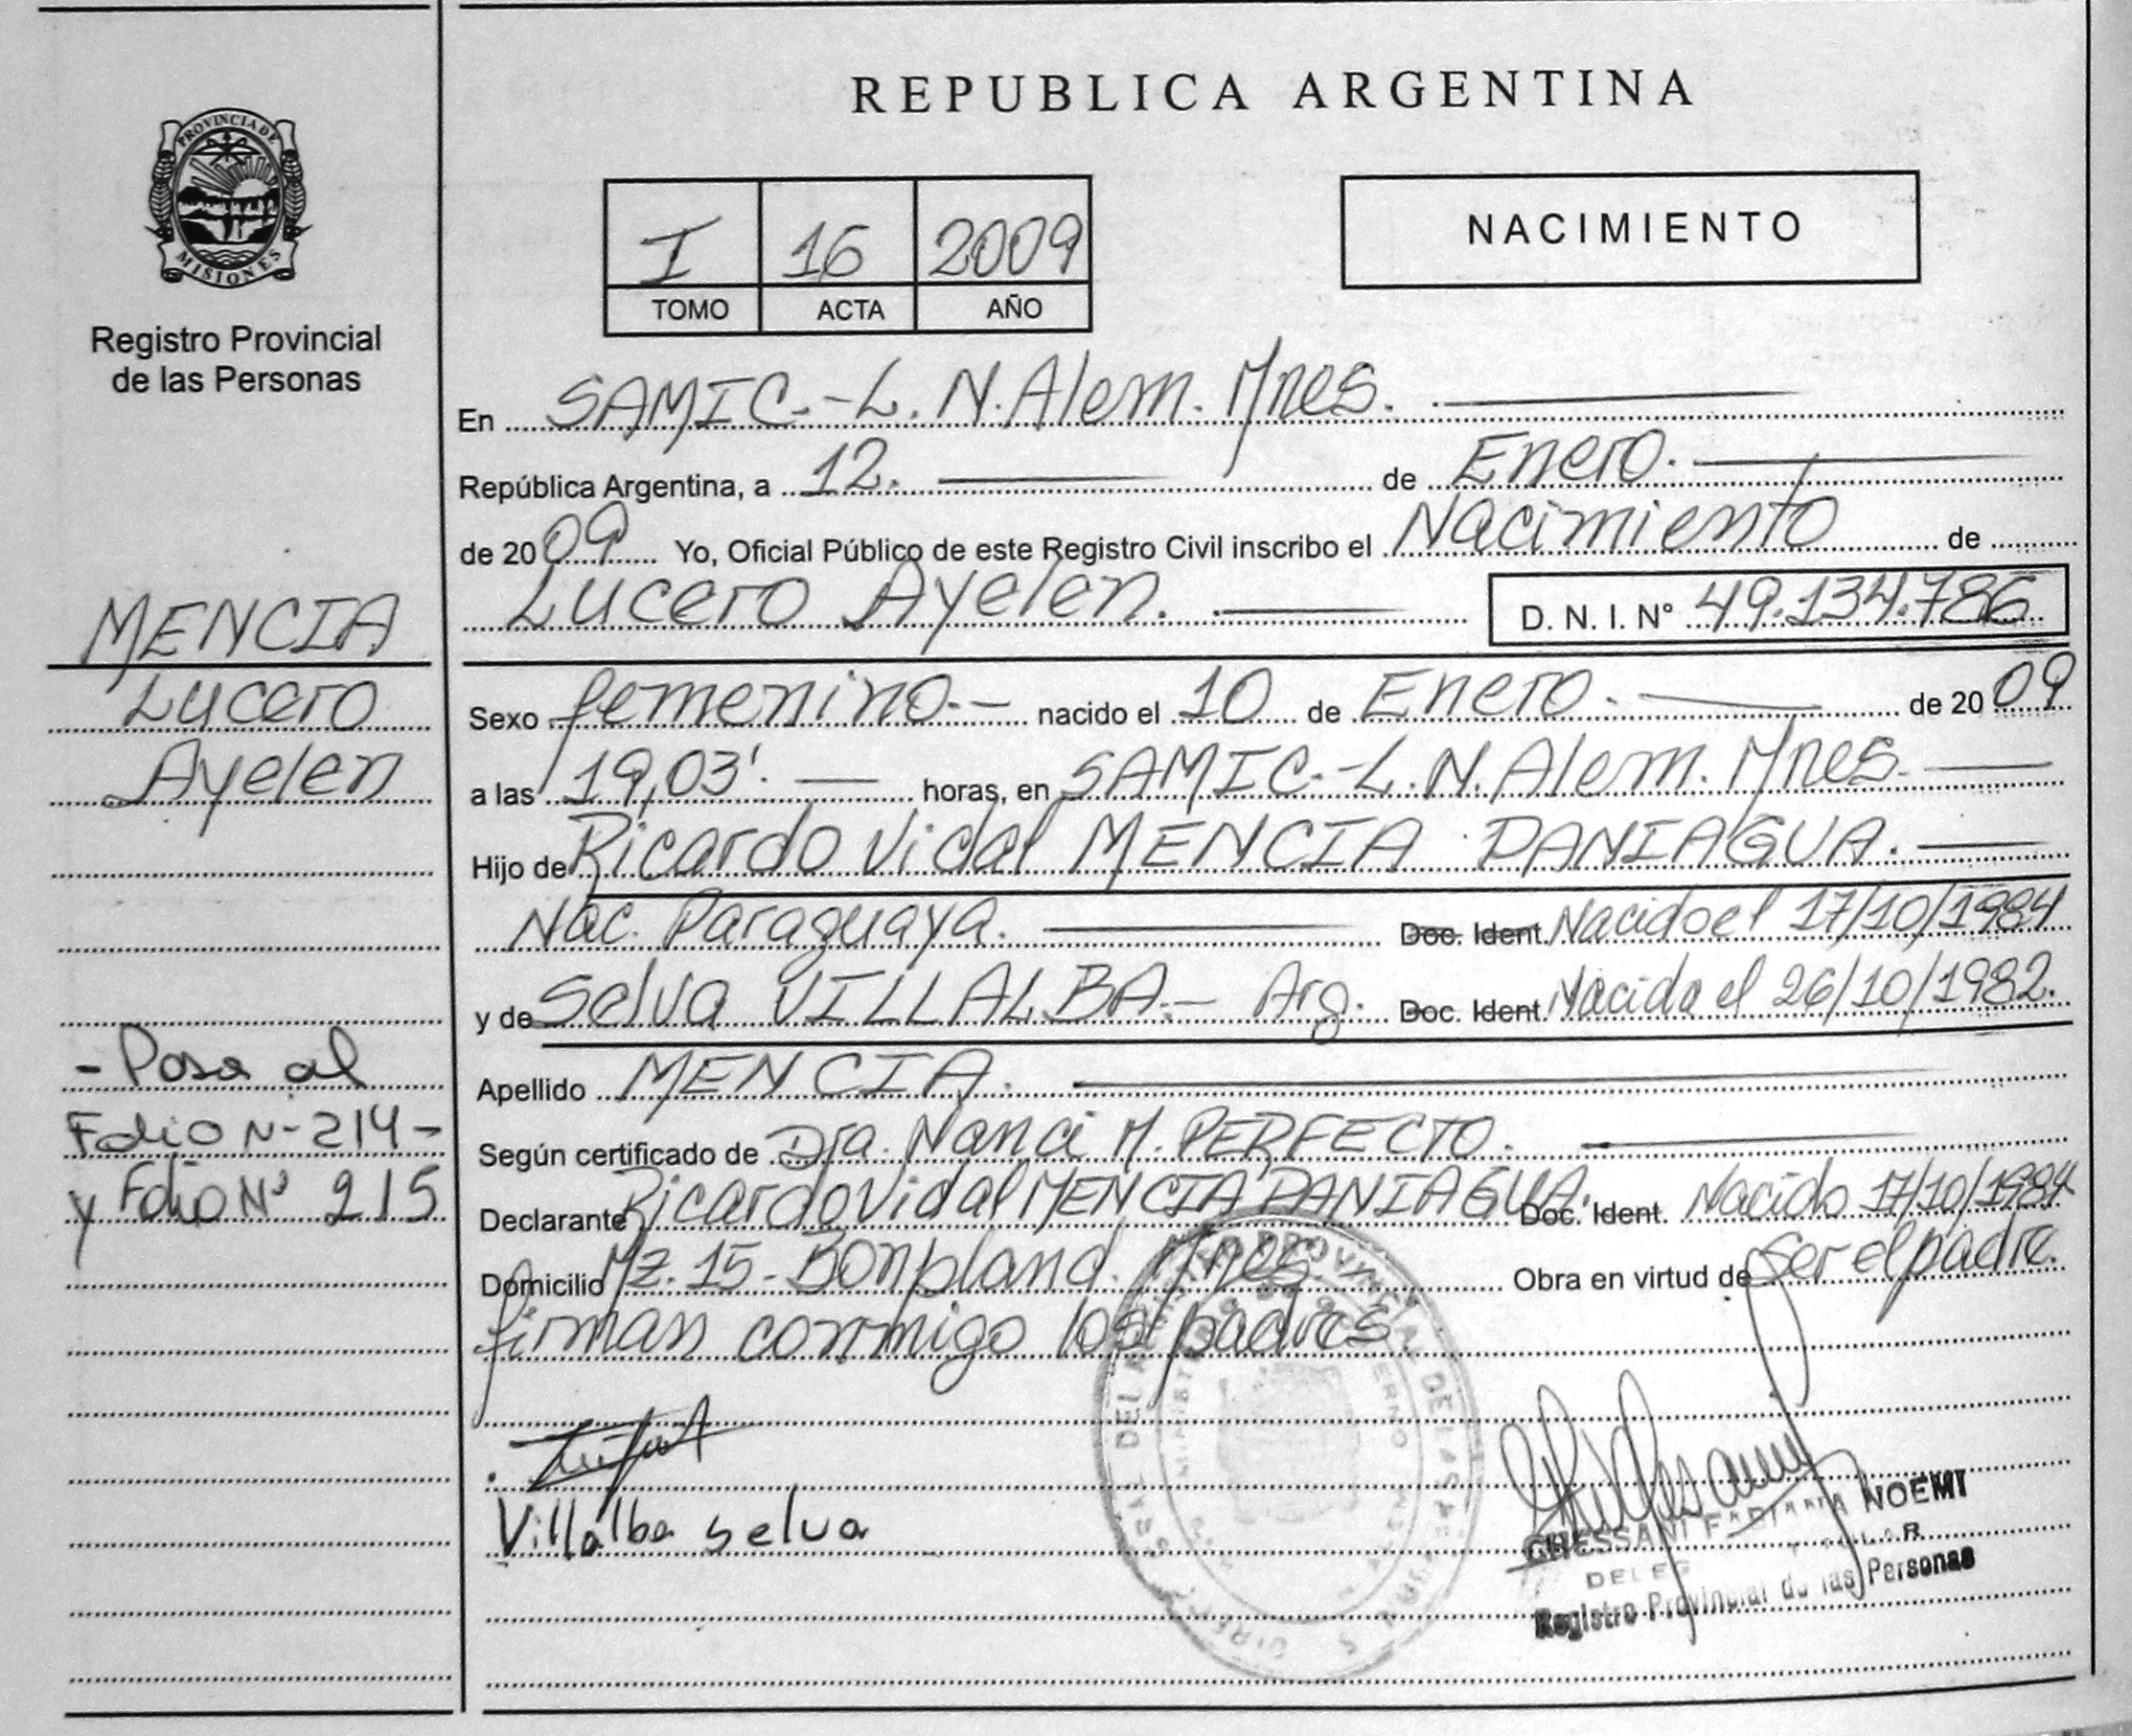 REPUBLICA ARGENTINA
PROVINCIA DE
MISIONES
Registro Provincial
de las Personas
I 16 2009
TOMO ACTA AÑO
NACIMIENTO
En SAMIC.-L.N.Alem. Mnes.
República Argentina, a 12. de Enero.
de 2009 Yo, Oficial Público de este Registro Civil inscribo el Nacimiento de
Lucero Ayelen. D. N. I. N° 49.134.786
MENCIA
Lucero
Ayelen
Sexo femenino.- nacido el 10 de Enero. de 2009
a las 19,03'. horas, en SAMIC.-L.N.Alem. Mnes.
Hijo de Ricardo Vidal MENCIA PANIAGUA.
Nac. Paraguaya. Doc. Ident. Nacido el 17/10/1984
y de Selva VILLALBA.- Arg. Doc. Ident. Nacida el 26/10/1982.
Apellido MENCIA.
- Pasa al
Folio N- 214-
y Folio N° 215
Según certificado de Dra. Nanci M. PERFECTO.
Declarante Ricardo Vidal MENCIA PANIAGUA. Doc. Ident. Nacido 17/10/1984
Domicilio Mz. 15- Bonpland. Mnes Obra en virtud de Ser el padre.
firman conmigo los padres.
Villalba Selva
GHESSANI FABIANA NOEMI
Registro Provincial de las Personas